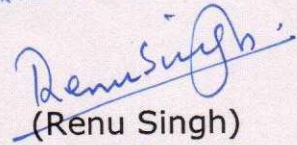 Renu Singh.
(Renu Singh)